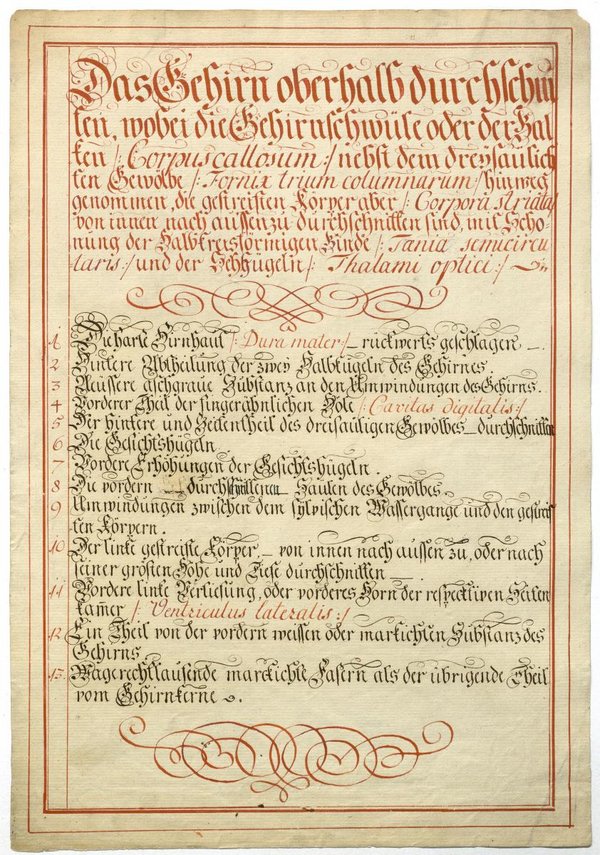 Das Gehirn oberhalb durchschnit
ten, wobei die Gehirnschwüle oder der Bal
ken /: Corpus callosum :/ nebst dem dreysäulich
ten Gewölbe /: Fornix trium columnarum :/ hinweg
genommen, die gestreiften Körper aber /: Corpora striata :/
von innen nach aussen zu durchschnitten sind, mit Scho
nung der halbkreisförmigen Binde /: Tænia semicircu
laris :/ und der Sehhügeln /: Thalami optici :/
1 Die harte Hirnhaut /: Dura mater :/ rückwerts geschlagen.
2 Hintere Abtheilung der zwey Halbkugeln des Gehirnes.
3 Aeussere aschgraue Substanz an den Umwindungen des Gehirns.
4 Vorderer Theil der fingerähnlichen Höle /: Cavitas digitalis :/
5 Der hintere und Seitentheil des dreisäuligen Gewölbes durchschnitten
6 Die Gesichtshügeln
7 Vordere Erhöhungen der Gesichtshügeln.
8 Die vordern durchschnittenen Säulen des Gewölbes.
9 Umwindungen zwischen dem sylvischen Wassergange und den gestreif
ten Körpern.
10 Der linke gestreifte Körper, von innen nach aussen zu, oder nach
seiner grösten Höhe und Tiefe durchschnitten.
11 Vordere linke Vertiefung, oder vorderes Horn der respecktiven Seiten
kam̅er /: Ventriculus lateralis :/
12 Ein Theil von der vordern weissen oder markichten Substanz des
Gehirns.
13. Wagerechtlaufende marckichte Fasern als der übrigende Theil
vom Gehirnkerne.